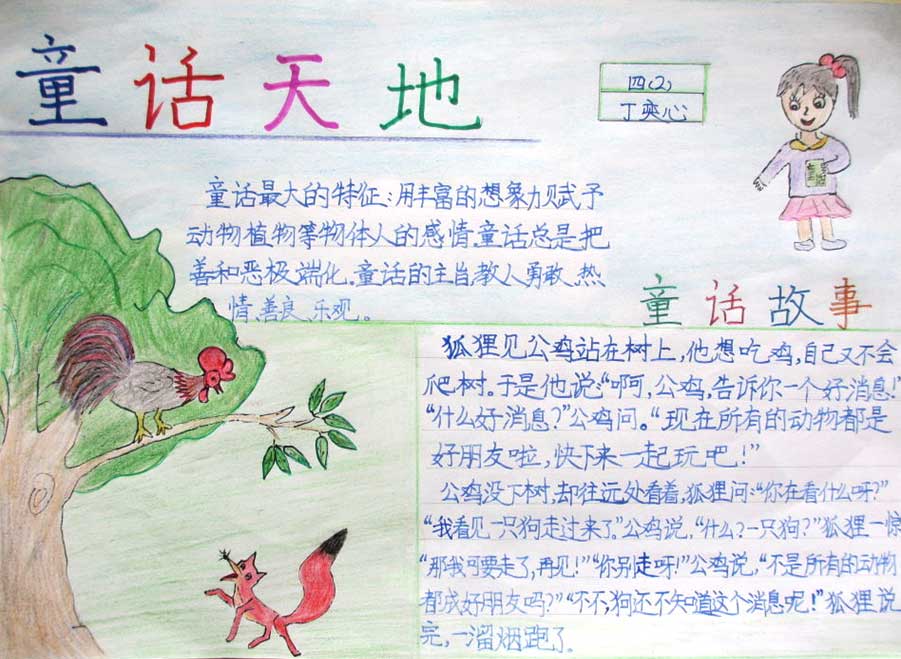 童话天地
四(2)
丁奕心
童话最大的特征:用丰富的想象力赋予
动物植物等物体人的感情.童话总是把
善和恶极端化.童话的主旨教人勇敢、热
情、善良、乐观。
童话故事
狐狸见公鸡站在树上,他想吃鸡,自己又不会
爬树。于是他说:“啊,公鸡,告诉你一个好消息!”
“什么好消息?”公鸡问。“现在所有的动物都是
好朋友啦,快下来一起玩吧!”
公鸡没下树,却往远处看着,狐狸问:“你在看什么呀?”
“我看见一只狗走过来了。”公鸡说,“什么?一只狗?”狐狸一惊
“那我可要走了,再见!”“你别走呀!”公鸡说,“不是所有的动物
都成好朋友吗?”“不,不,狗还不知道这个消息呢!”狐狸说
完,一溜烟跑了.